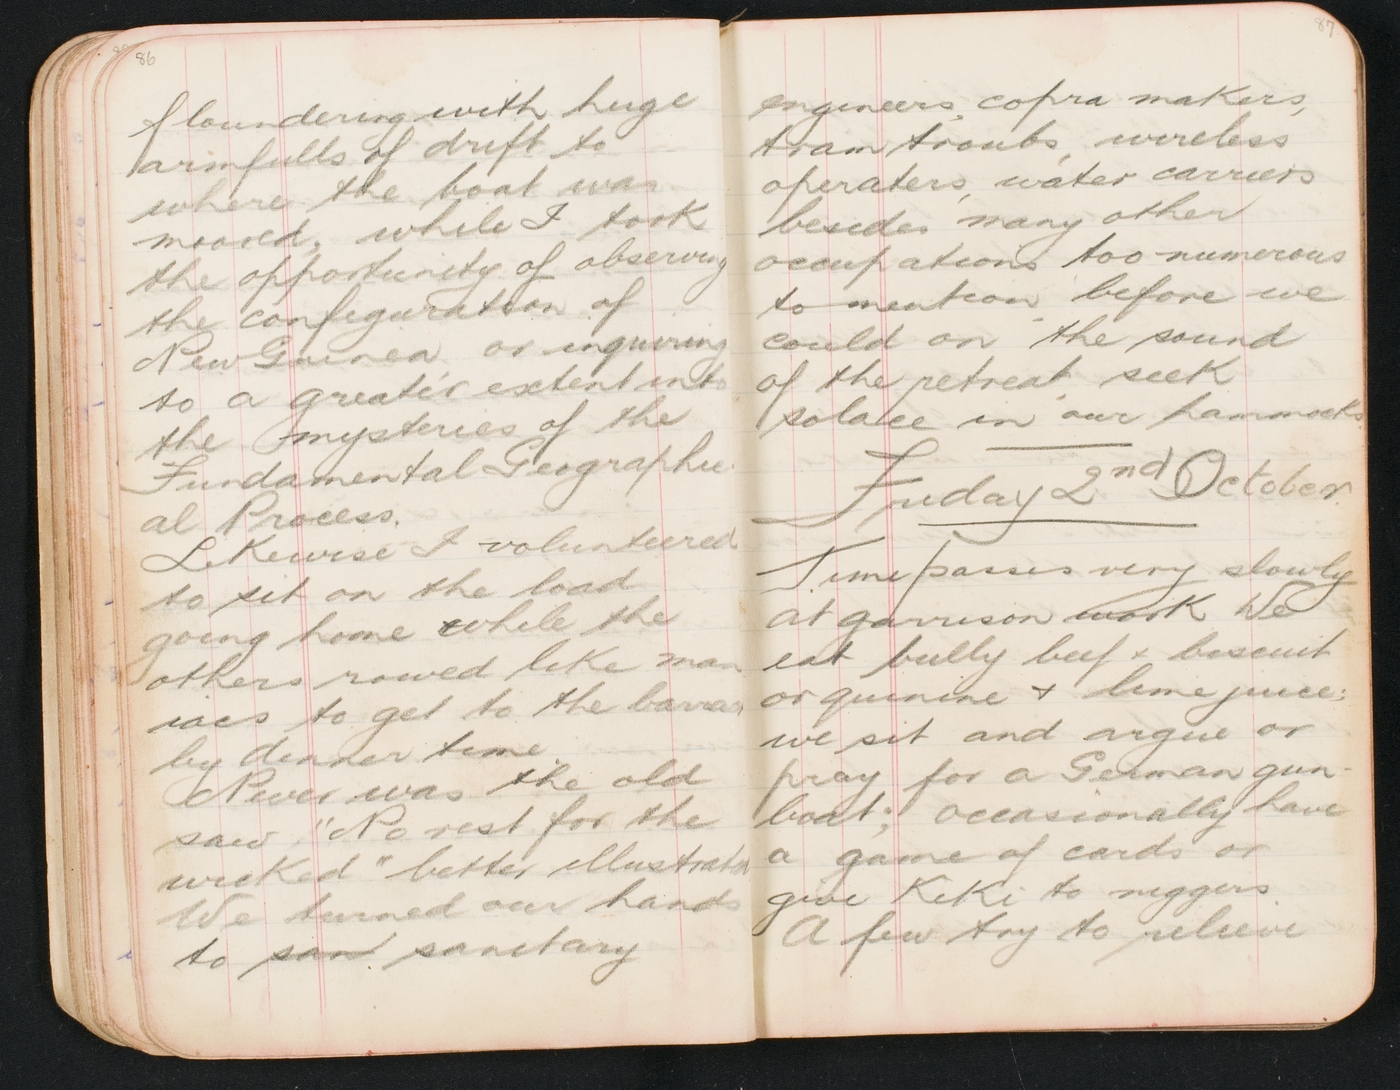 86
floundering with huge
armfulls of drift to
where the boat was
moored, while I took
the opportunity of observing
the configuration of
New Guinea or inquiring
to a greater extent into
the mysteries of the
Fundamental Geographic
al Process.
Likewise I volunteered
to sit on the load
going home while the
others rowed like man
iacs to get to the barracs
by dinner time.
Never was the old
saw "No rest for the
wicked" better illustrated
We turned our hands
to san sanitary
87
engineers, copra makers,
tram troubs, wireless
operaters, water carriers
besides many other
occupations too numerous
to mention before we
could on the sound
of the retreat seek
solace in our hammocks.
Friday 2nd October.
Time passes very slowly
at garrison work We
eat bully beef & biscuit
or quinine & lime juice;
we sit and argue or
pray for a German gun-
boat; occasionally have
a game of cards or
give KiKi to niggers
A few try to relieve